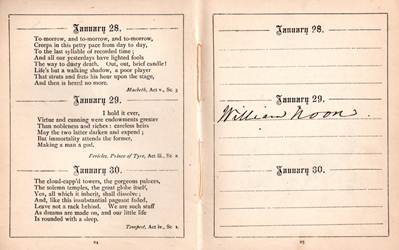 January 28.
To-morrow, and to-morrow, and to-morrow,
Creeps in this petty pace from day to day,
To the last syllable of recorded time;
And all our yesterdays have lighted fools
The way to dusty death. Out, out, brief candle!
Life's but a walking shadow, a poor player
That struts and frets his hour upon the stage,
And then is heard no more.
Macbeth, Act v., Sc. 5
January 29.
I hold it ever,
Virtue and cunning were endowments greater
Than nobleness and riches: careless heirs
May the two latter darken and expend;
But immortality attends the former,
Making a man a god.
Pericles, Prince of Tyre, Act iii., Sc. 2
January 30.
The cloud-capp'd towers, the gorgeous palaces,
The solemn temples, the great globe itself,
Yea, all which it inherit, shall dissolve;
And, like this insubstantial pageant faded,
Leave not a rack behind. We are such stuff
As dreams are made on, and our little life
Is rounded with a sleep.
Tempest, Act iv., Sc. 1.
24
January 28.
January 29.
William Noon.
January 30.
25